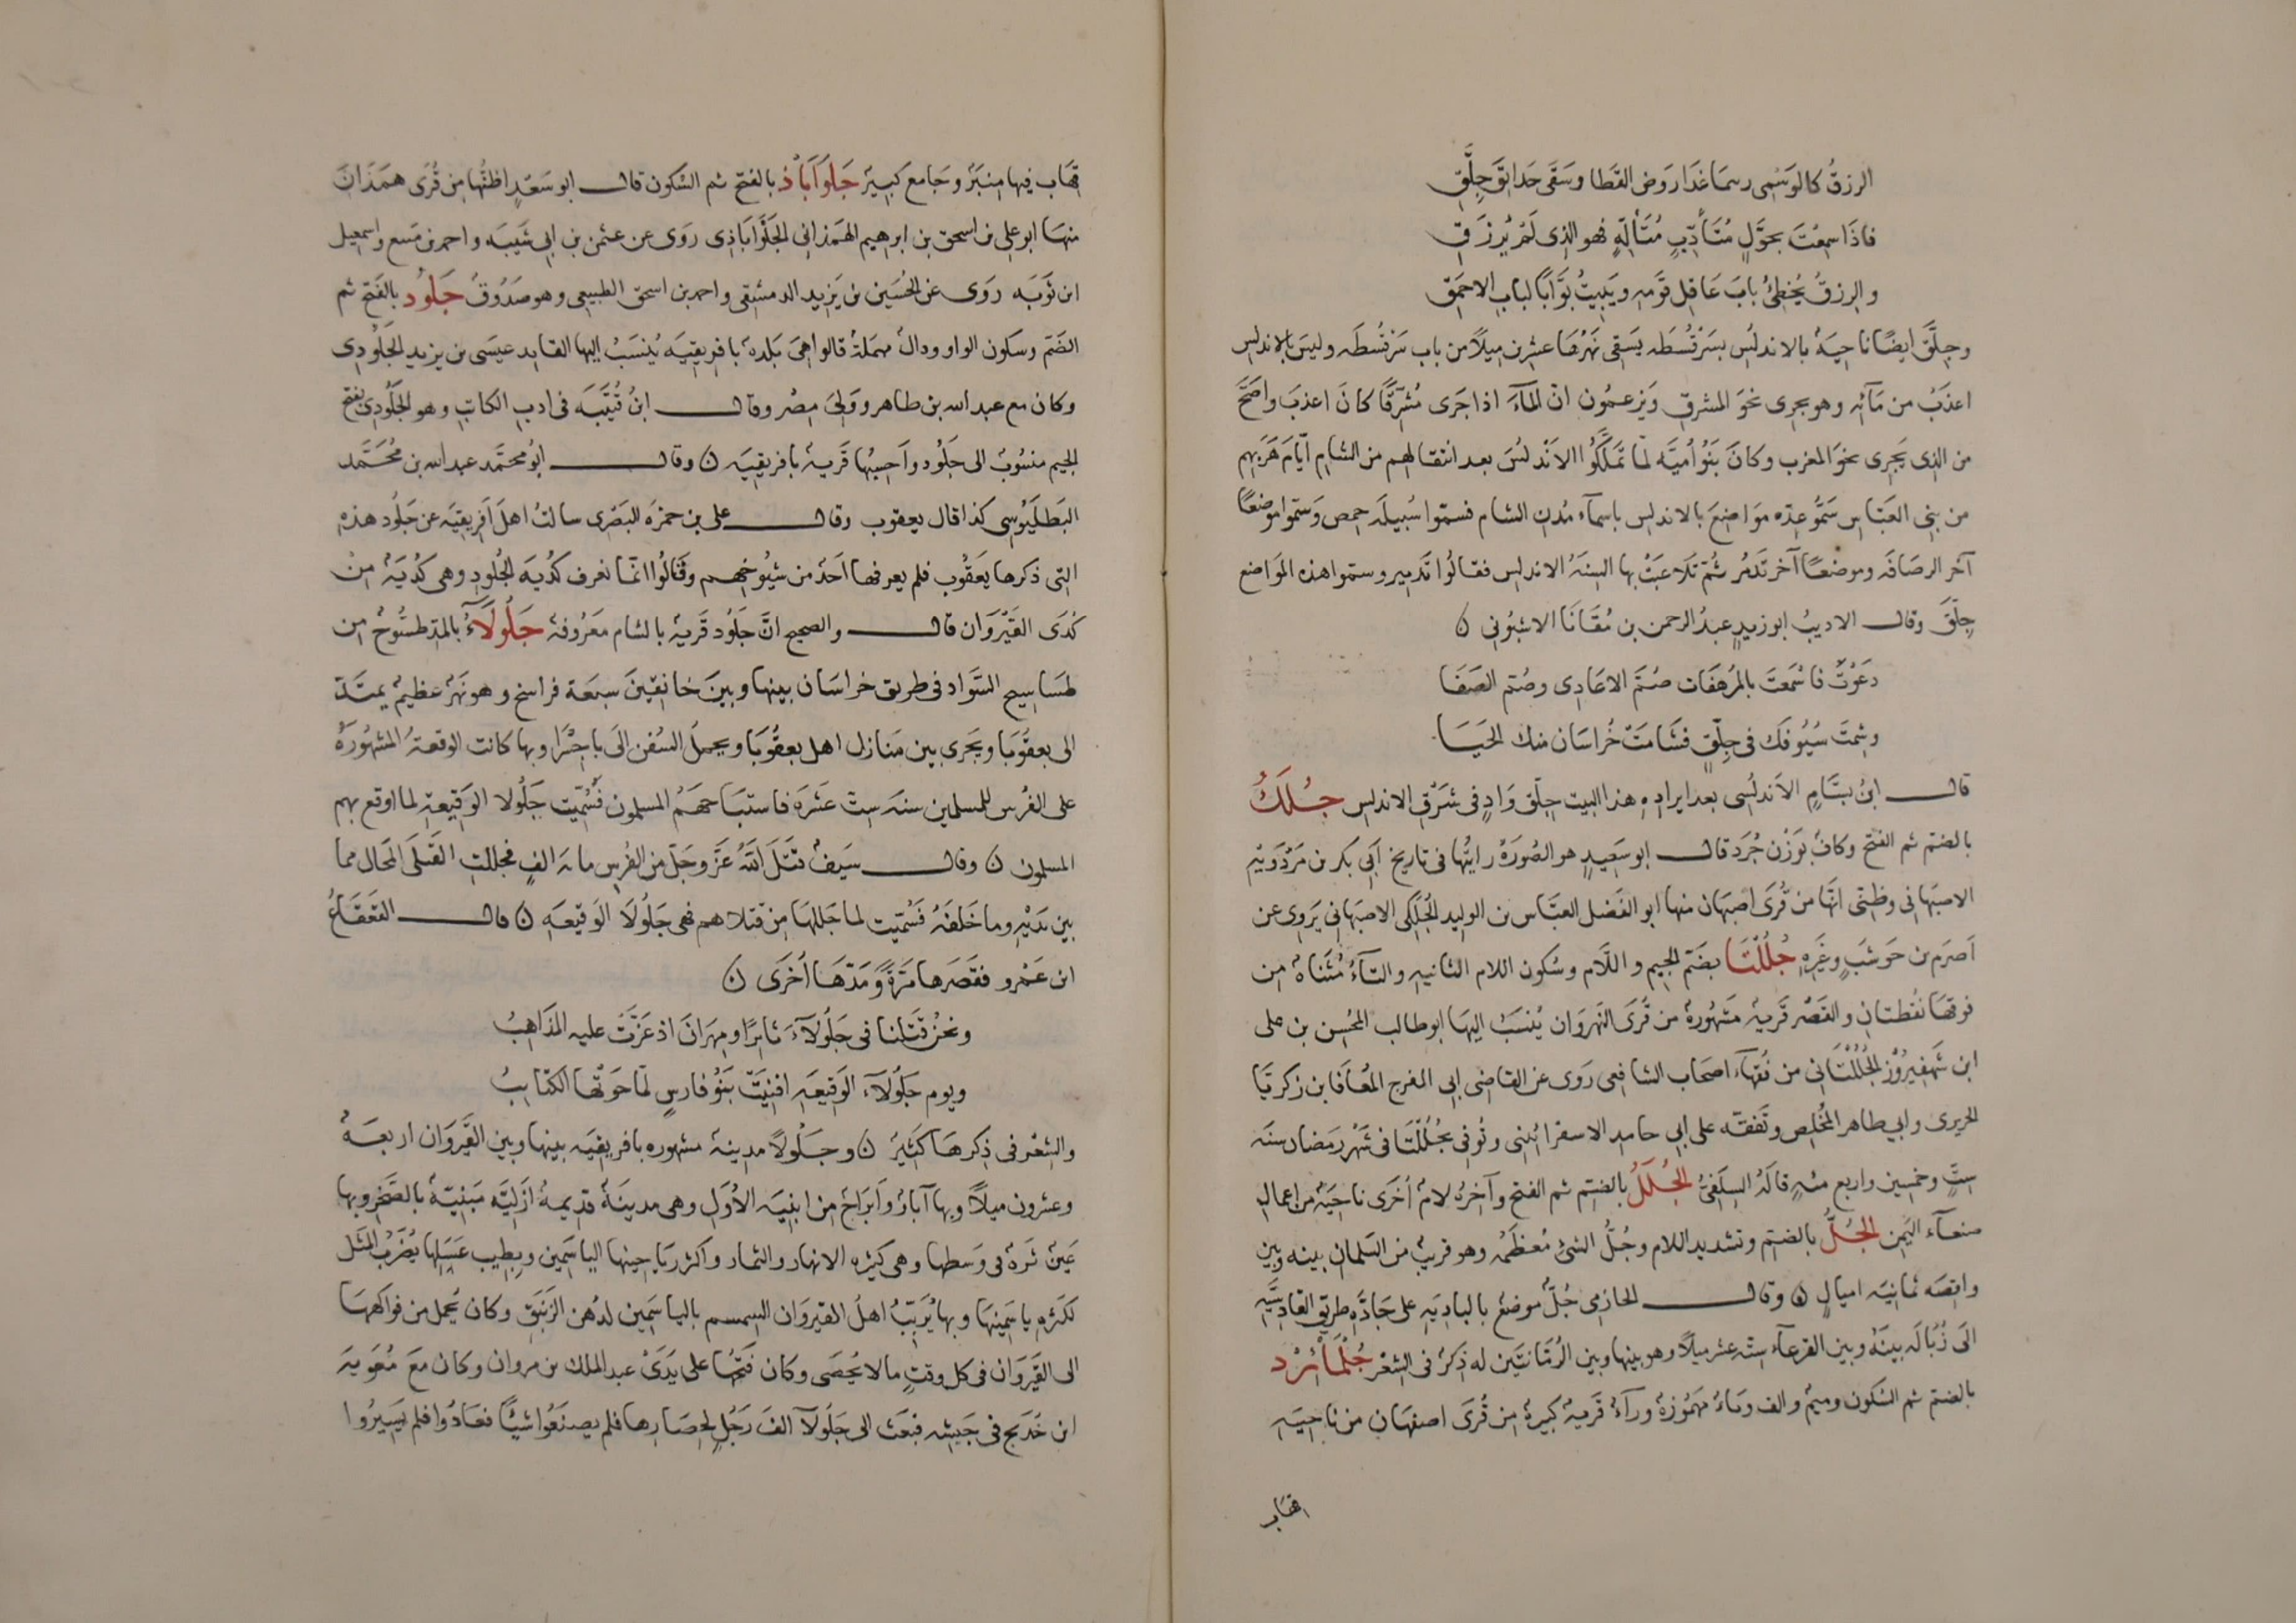 الرزقُ كالوَسْمِى رسمَا غَدَا رَوضَ القَطا وسَقَى حَدائقَ جِلَّقِ
فاذَا سمِعْتَ بحوَّلٍ مُتَأدِّبٍ مُتَألِّهٍ فهو الذى لَمْ يُرزَقِ
والرزقُ يُخطِئُ بابَ عَاقِلِ قَومِهِ ويَبِيتُ بَوَّابًا لبابِ الاحمَقِ
وجِلَّقَ ايضًا ناحيَةٌ بالاندلُسِ بسَرْقُسْطَه يَسْقِى نَهرُهَا عشرين ميلًا من باب سَرْقُسْطَه وليسَ بالاندلس
اعذَبُ من مَآئِه وهو يجرى نحوَ المشرقِ ويَزعمُون ان المآءَ اذا جَرَى مُشَرِّقًا كانَ اعذبَ واصَحَّ
من الذى يَجرى نحوَ المغرب وكانَ بَنُو اُميَّه لما تَملَّكُوا الاَنْدلُسَ بعد انتقالهم من الشام ايَّامَ هَرَبِهم
من بنى العبَّاس سَمُّو عِدّه موَاضِعَ بالاندلس باسمآء مُدنِ الشام فسمّوا سبيلَه حمصَ وسَمّوا موضعًا
آخر الرصَافَه وموضعًا آخر تَدمُر ثُمّ تَلاعَبَتْ بها السِنَهُ الاندلس فقالُوا تَدمير وسموا هذه المَوَاضع
جِلّقَ وقال الاديبُ ابو زيدٍ عبدُ الرحمن بن مُقَانَا الاشبُونى ن
دَعَوتَ فاسْمَعتَ بالمُرهَفَات صُمَّ الاعَادِى وصُم الصَفَا
وشِمتَ سُيُوفَك فى جِلَّقٍ فشَامَتْ خُرَاسَان منك الحَيَا
قال ابنُ بسَّامٍ الاَندلُسى بعد ايرادِهِ هذا البيت جِلّق وَادٍ فى شَرْقِ الاندلس جُلَكُ
بالضم ثم الفتح وكافٌ بوَزْن جُرَد قال ابو سَعِيدٍ هو الصُورَهُ رايتُها فى تاريخ ابَى بكر بن مَرْدَوَيْهِ
الاصبَهانى وظنّى انَّها من قُرَى اصبَهَان منها ابو الفَضل العبّاس بن الوليد الجُلَكى الاصبَهانى يَروِى عن
اَصرَم بن حَوشَبٍ وغَيرِهِ جُلُلْتَا بضَمّ الجيم واللَام وسُكون اللام الثانيهِ والتآءُ مُثَناهٌ من
فوقهَا نُقطتانِ والقَصْر قَريهٌ مَشهُورهٌ من قُرَى النَهرَوَان يُنسَبُ اليهَا ابو طالب المحُسِن بن على
ابن شَهْفِيرُوْز الجُلُلْتَانى من فُقهآء اصحَاب الشافعى رَوَى عن القاضى ابى المفرج المُعَافَا بن زكريّا
الحريرى وابى طاهر المُخْلِص وتَفَقَّه على ابى حامد الاسفرائينى وتُوفى بجُلُلْتَا فى شَهْرِ رَمضَان سنَه
ستٍّ وخمسين واربع مئهٍ قالَهُ السِلَفىُّ الجُلَلُ بالضم ثم الفتح وآخرُه لامٌ اُخرَى ناحيَهٌ من اعمالِ
صنعآء اليَمن الجُلُّ بالضم وتشديد اللام وجُلُّ الشئ مُعظَمُه وهو قريبٌ من السَلمان بينه وبين
واقِصَه ثمانيَه اميالٍ ن وقال الحازمى جُلٌّ موضعٌ بالباديَهِ على جَادَّهِ طريقِ القادِسيَّهِ
الَى زُبَالَه بيَنهُ وبين القرعآء ستّه عشر ميلًا وهو بينها وبين الرُمّانتَين له ذِكرٌ فى الشعْر جُلْمَائَرْد
بالضم ثم السكون وميمٌ والف وياءٌ مَهمُوزهٌ ورآءٌ قَريهٌ كبيرهٌ من قُرَى اصفهَان من ناحيَهِ
قهَاب
قهَاب فيها مِنبَرٌ وجَامع كَبيرٌ جَلَوَآبَاذُ بالفتح ثم السّكون قال ابو سَعْدٍ اظنُّها من قُرَى همَذَانَ
منهَا ابو على بن اسحق بن ابرهيم الهمَذانى الجَلَوَابَاذِى روَى عن عثمن بن ابى شَيبَه واحمد بن مَنيع واسمعيل
ابن تَوبَه رَوَى عن الحُسَين بن يَزيد الدمشقى واحمد بن اسحق الطبيبى وهو صَدُوقٌ جَلُودُ بالفَتح ثم
الضَمّ وسكون الواو ودالٌ مهمَلهٌ قالوا هىَ بَلدهٌ بافريقيَه يُنسَبُ اليها القايد عيسَى بن يزيد الجَلُودِى
وكان مع عبد الله بن طاهر ووَلِىَ مِصْر وقال ابنُ قُتَيّبَه فى ادبِ الكاتب وهو الجَلُودِى بفتح
الجيم منسُوبٌ الى جلُود واَحسِبُها قَريهٌ بافريقيَه ن وقال ابُو محمَّد عبد الله بن مُحَمَّد
البَطلَيُوسِى كذا قال يعقوب وقال على بن حمزَه البَصْرى سالتُ اهلَ اَفريقيَه عن جَلُود هذهِ
التى ذكرها يَعقُوب فلم يعرفها اَحَدٌ من شيُوخهِم وقَالُوا انّمَا نعرف كُدْيَه الجُلُودِ وهى كُدْيَهٌ من
كُدَى القَيْرَوَان قال والصحيح انَّ جَلُود قَريهٌ بالشام مَعرُوفهٌ جَلُولَآءُ بالمدّ طسُّوجٌ من
طسَاسِيج السَّوَاد فى طريق خراسَان بينها وبينَ خانقينَ سبعَة فراسخ وهو نَهرٌ عظيمٌ يمتَدُّ
الى بعقوبَا ويَجرى بين منَازل اهل بعقُوبَا ويحملُ السُفن الَى باجِسْرا وبها كانت الوقعهُ المشهُورَهُ
على الفُرس للمسلمين سنه ستّ عَشرَه فاستبَاحهَمُ المسلمون فَسُمّيَت جَلُولا الوَقيعهِ لما اوقع بهم
المسلمون ن وقال سَيفٌ قتَلَ اللّهُ عَزّ وجَلّ من الفُرسِ مائه الفٍ فجلّلتِ القَتلَى المَجال مما
بين يدَيْهِ وما خَلفَهُ فَسُمّيَت لما جَلّلهَا من قتلاهم فهى جَلُولَا الوَقيعَهِ ن قال القَعقَاعُ
ابن عَمْرو فقَصَرَها مَرّهً ومَدّهَا اُخرَى ن
ونحنُ قتَلنا فى جلُولآءَ ثابرًا ومِهرَانَ اذ عَزّتْ عليه المَذاهبُ
ويوم جَلُولآء الوَقيعَهِ افنِيَتْ بَنُو فارسٍ لمّا حوَتْها الكتايبُ
والشِعْر فى ذِكرهَا كَثيرٌ ن وجَلُولَا مدينهٌ مشهوره بافريقيَه بينها وبين القَيْرَوَان اربعَهٌ
وعشرون ميلًا وبها آبارٌ وَاَبرَاجٌ من ابنيَه الاُوَلِ وهى مدينَهٌ قديمهٌ اَزَليَّه مَبنيّهٌ بالصَخْر وبها
عَينٌ ثَرّهٌ فى وَسَطها وهى كثيره الانهار والثمار واكثر رَيَاحينها اليَاسَمين وبِطيب عَسَلِها يُضرَبُ المَثَل
لكَثرهِ يَاسَمينهَا وبها يُرَبّبُ اهلُ القيرَوَان السمسم باليَاسَمين لدُهنِ الزَنبَقِ وكان يُحمل من فواكههَا
الى القَيْرَوَان فى كل وقتٍ ما لا يُحصَى وكان فَتحُها على يَدَىْ عبد الملك بن مروان وكان مَع مُعَويهَ
ابن خُدَيج فى جَيشِه فبَعَث الى جَلُولَآ الفَ رَجُلٍ لحِصَارها فلم يصنَعُوا شيئًا فعَادُوا فلم يَسِيرُوا